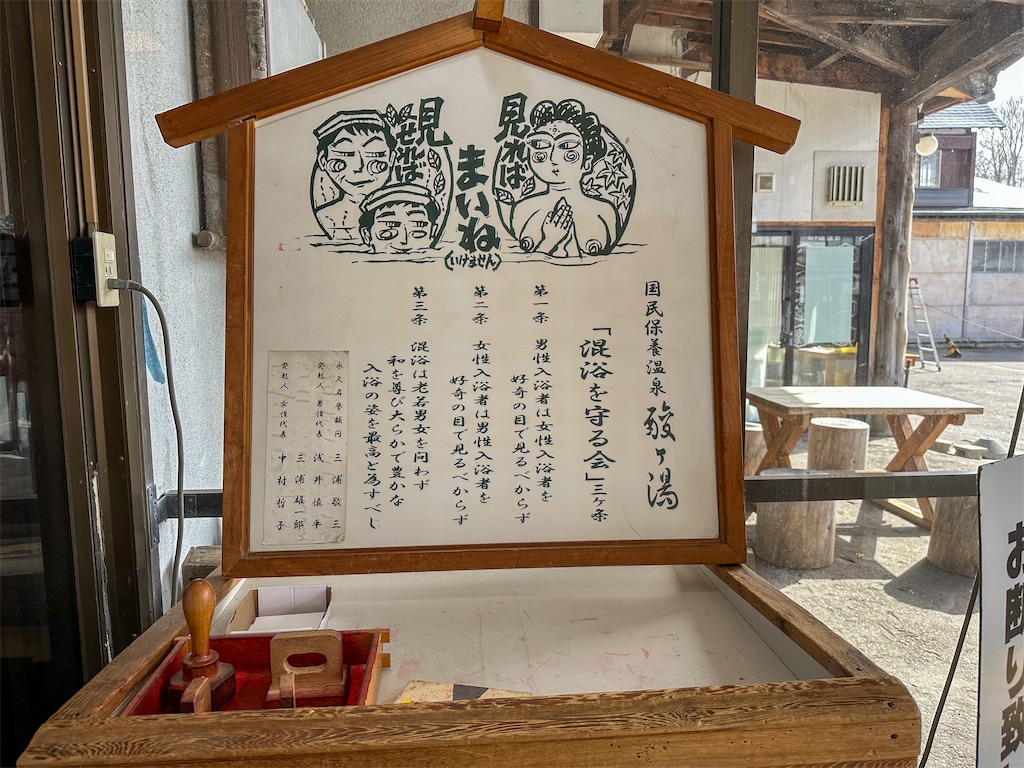 見れば
見せれば
まいね
(いけません)
国民保養温泉 酸ヶ湯
「混浴を守る会」三ヶ条
第一条 男性入浴者は女性入浴者を
好奇の目で見るべからず
第二条 女性入浴者は男性入浴者を
好奇の目で見るべからず
第三条 混浴は老若男女を問わず
和を尊び大らかで豊かな
入浴の姿を最高と為すべし
永久名誉顧問 三浦敬三
発起人 男性代表 浅井慎平
三浦雄一郎
発起人 女性代表 中村哲子
お断り致